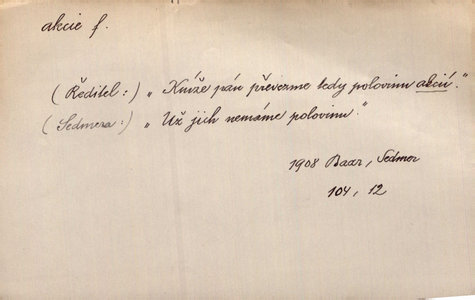 akcie f.
(Ředitel:) „Kníže pán převezme tedy polovinu akcií."
(Sedmera:) „Už jich nemáme polovinu."
1908 Baar, Sedmer
104, 12